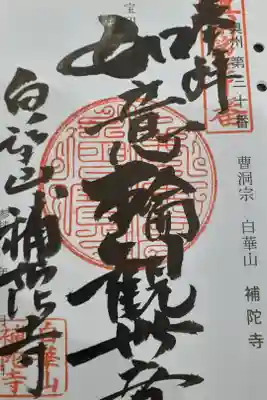 奥州第二十番
奉拝
如意輪観世音
白華山
補陀寺
曹洞宗 白華山 補陀寺
白華山
補陀寺